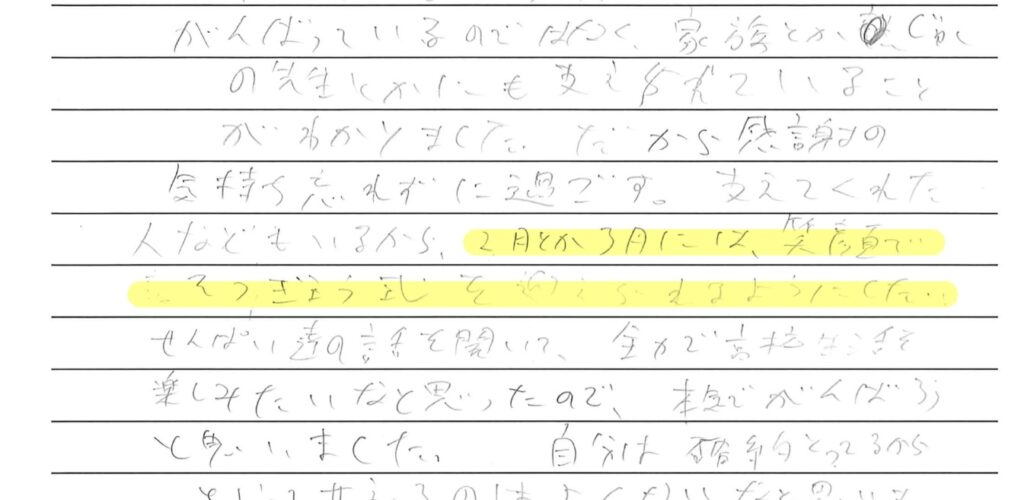 がんばっているのではなく、家族とか
の先生とかにも支えられていること
がわかりました。だから感謝の
気持ち忘れずに過ごす。支えてくれた
人などもいるから、2月とか3月には、笑顔で
そつぎょう式を迎えられるようにしたい。
せんぱい達の話を聞いて、全力で高校生活を
楽しみたいなと思ったので、本気でがんばろう
と思いました。自分は 確約とってるから
といって甘えるのはよくないなと思いま